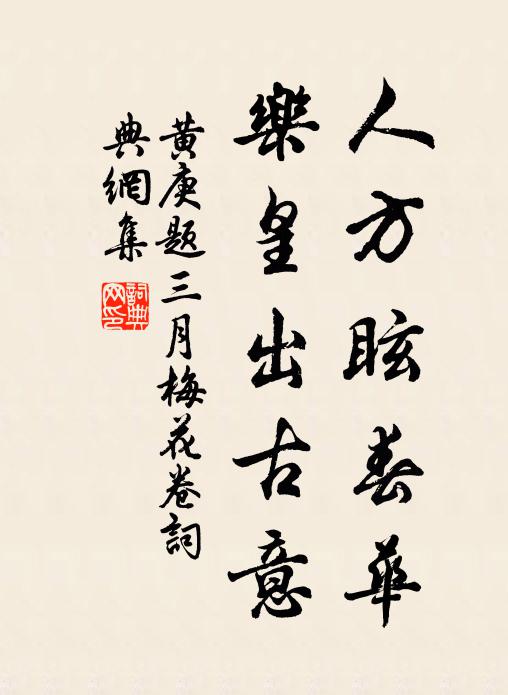 人方眩春華
樂皇出古意
黄庚题三月梅花卷詞
典網集
詞典网印